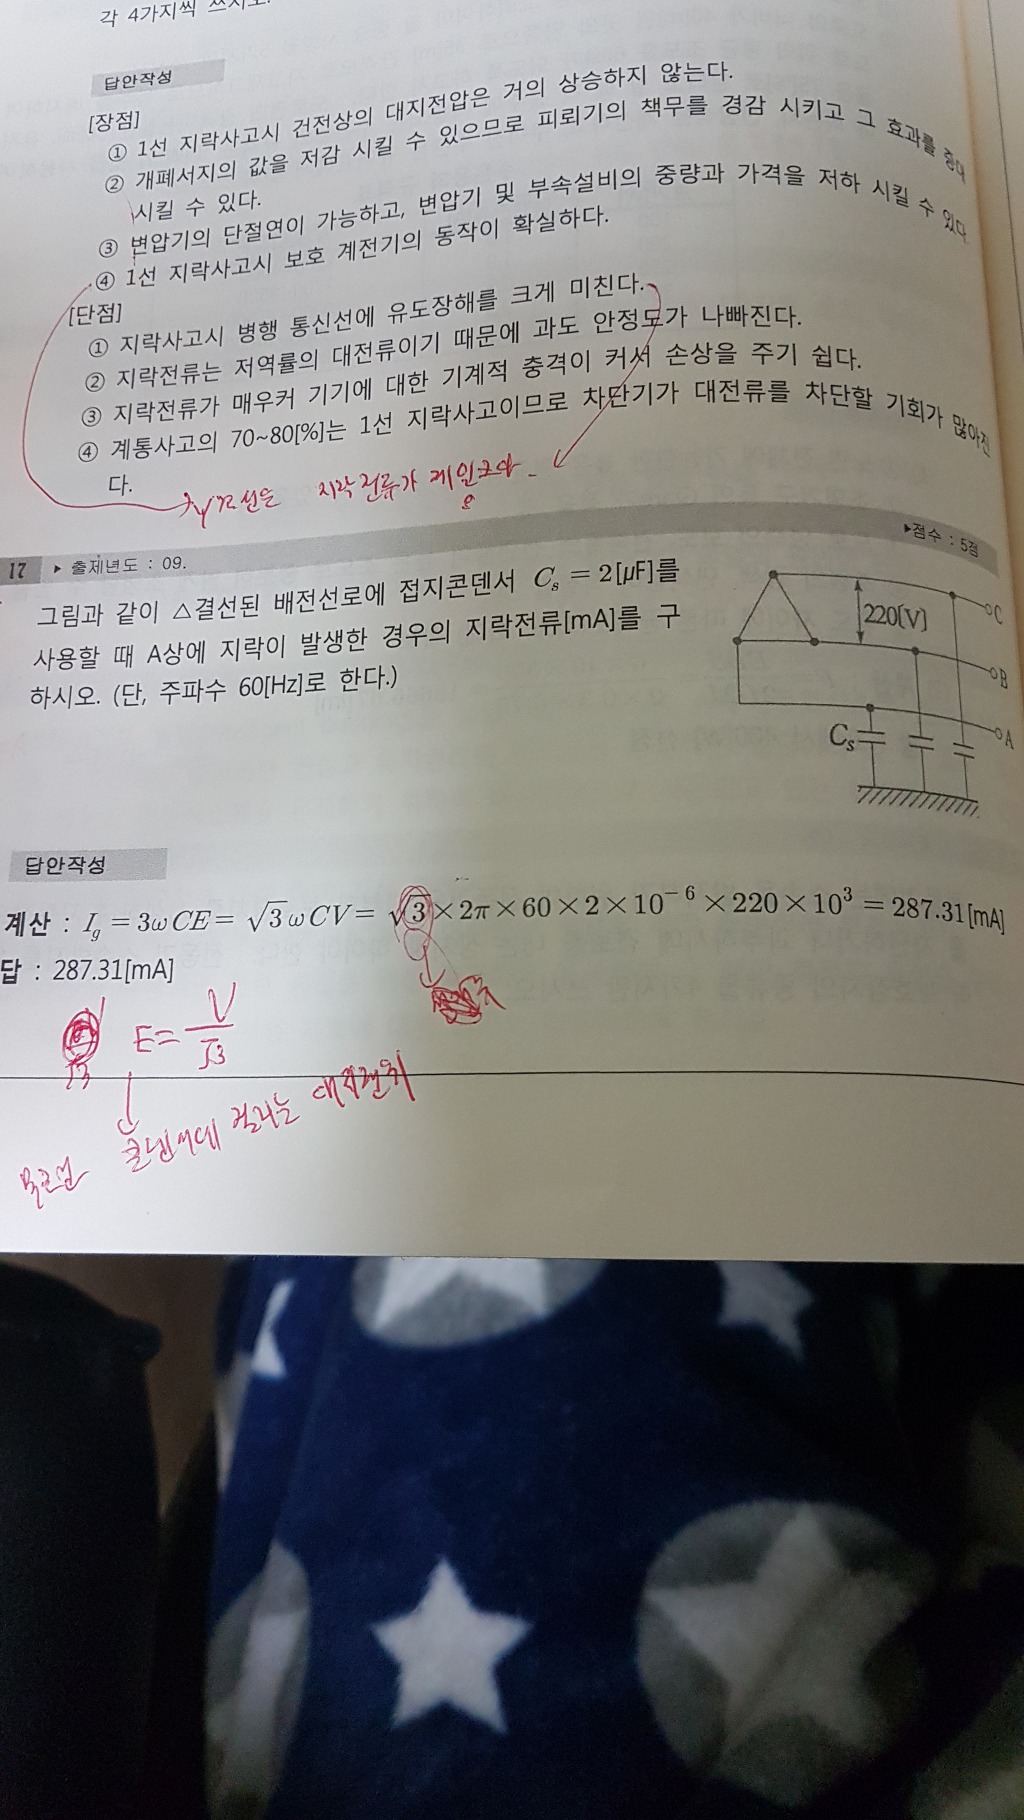 각 4가지씩 쓰시오.
답안작성
[장점]
① 1선 지락사고시 건전상의 대지전압은 거의 상승하지 않는다.
② 개폐서지의 값을 저감 시킬 수 있으므로 피뢰기의 책무를 경감 시키고 그 효과를 증대
시킬 수 있다.
③ 변압기의 단절연이 가능하고, 변압기 및 부속설비의 중량과 가격을 저하 시킬 수 있다
④ 1선 지락사고시 보호 계전기의 동작이 확실하다.
[단점]
① 지락사고시 병행 통신선에 유도장해를 크게 미친다.
② 지락전류는 저역률의 대전류이기 때문에 과도 안정도가 나빠진다.
③ 지락전류가 매우커 기기에 대한 기계적 충격이 커서 손상을 주기 쉽다.
④ 계통사고의 70~80[%]는 1선 지락사고이므로 차단기가 대전류를 차단할 기회가 많아진
다.
지락전류가 제일크다
17 ▶ 출제년도 : 09. ▶점수 : 5점
그림과 같이 △결선된 배전선로에 접지콘덴서 Cs = 2[μF]를
사용할 때 A상에 지락이 발생한 경우의 지락전류[mA]를 구
하시오. (단, 주파수 60[Hz]로 한다.)
220[V]
C
B
A
Cs
답안작성
계산 : Ig = 3ωCE = √3ωCV = √3×2π×60×2×10⁻⁶×220×10³ = 287.31[mA]
답 : 287.31[mA]
√3
E = V/√3
콘덴서에 걸리는 대지전위